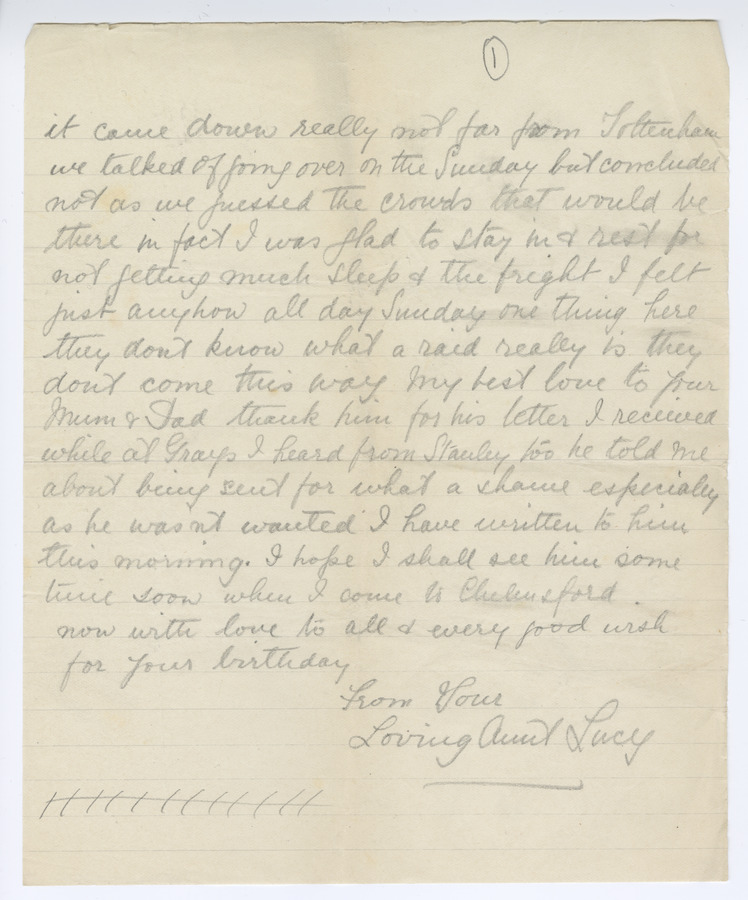 1
it came down really not far from Tottenham
we talked of going over on the Sunday but concluded
not as we guessed the crowds that would be
there in fact I was glad to stay in & rest for
not getting much sleep & the fright I felt
just anyhow all day Sunday one thing here
they don't know what a raid really is they
don't come this way. My best love to your
Mum & Dad thank him for his letter I received
while at Grays I heard from Stanley too he told me
about being sent for what a shame especially
as he wasn't wanted I have written to him
this morning. I hope I shall see him some
time soon when I come to Chelmsford.
now with love to all & every good wish
for your birthday
From Your
Loving Aunt Lucy